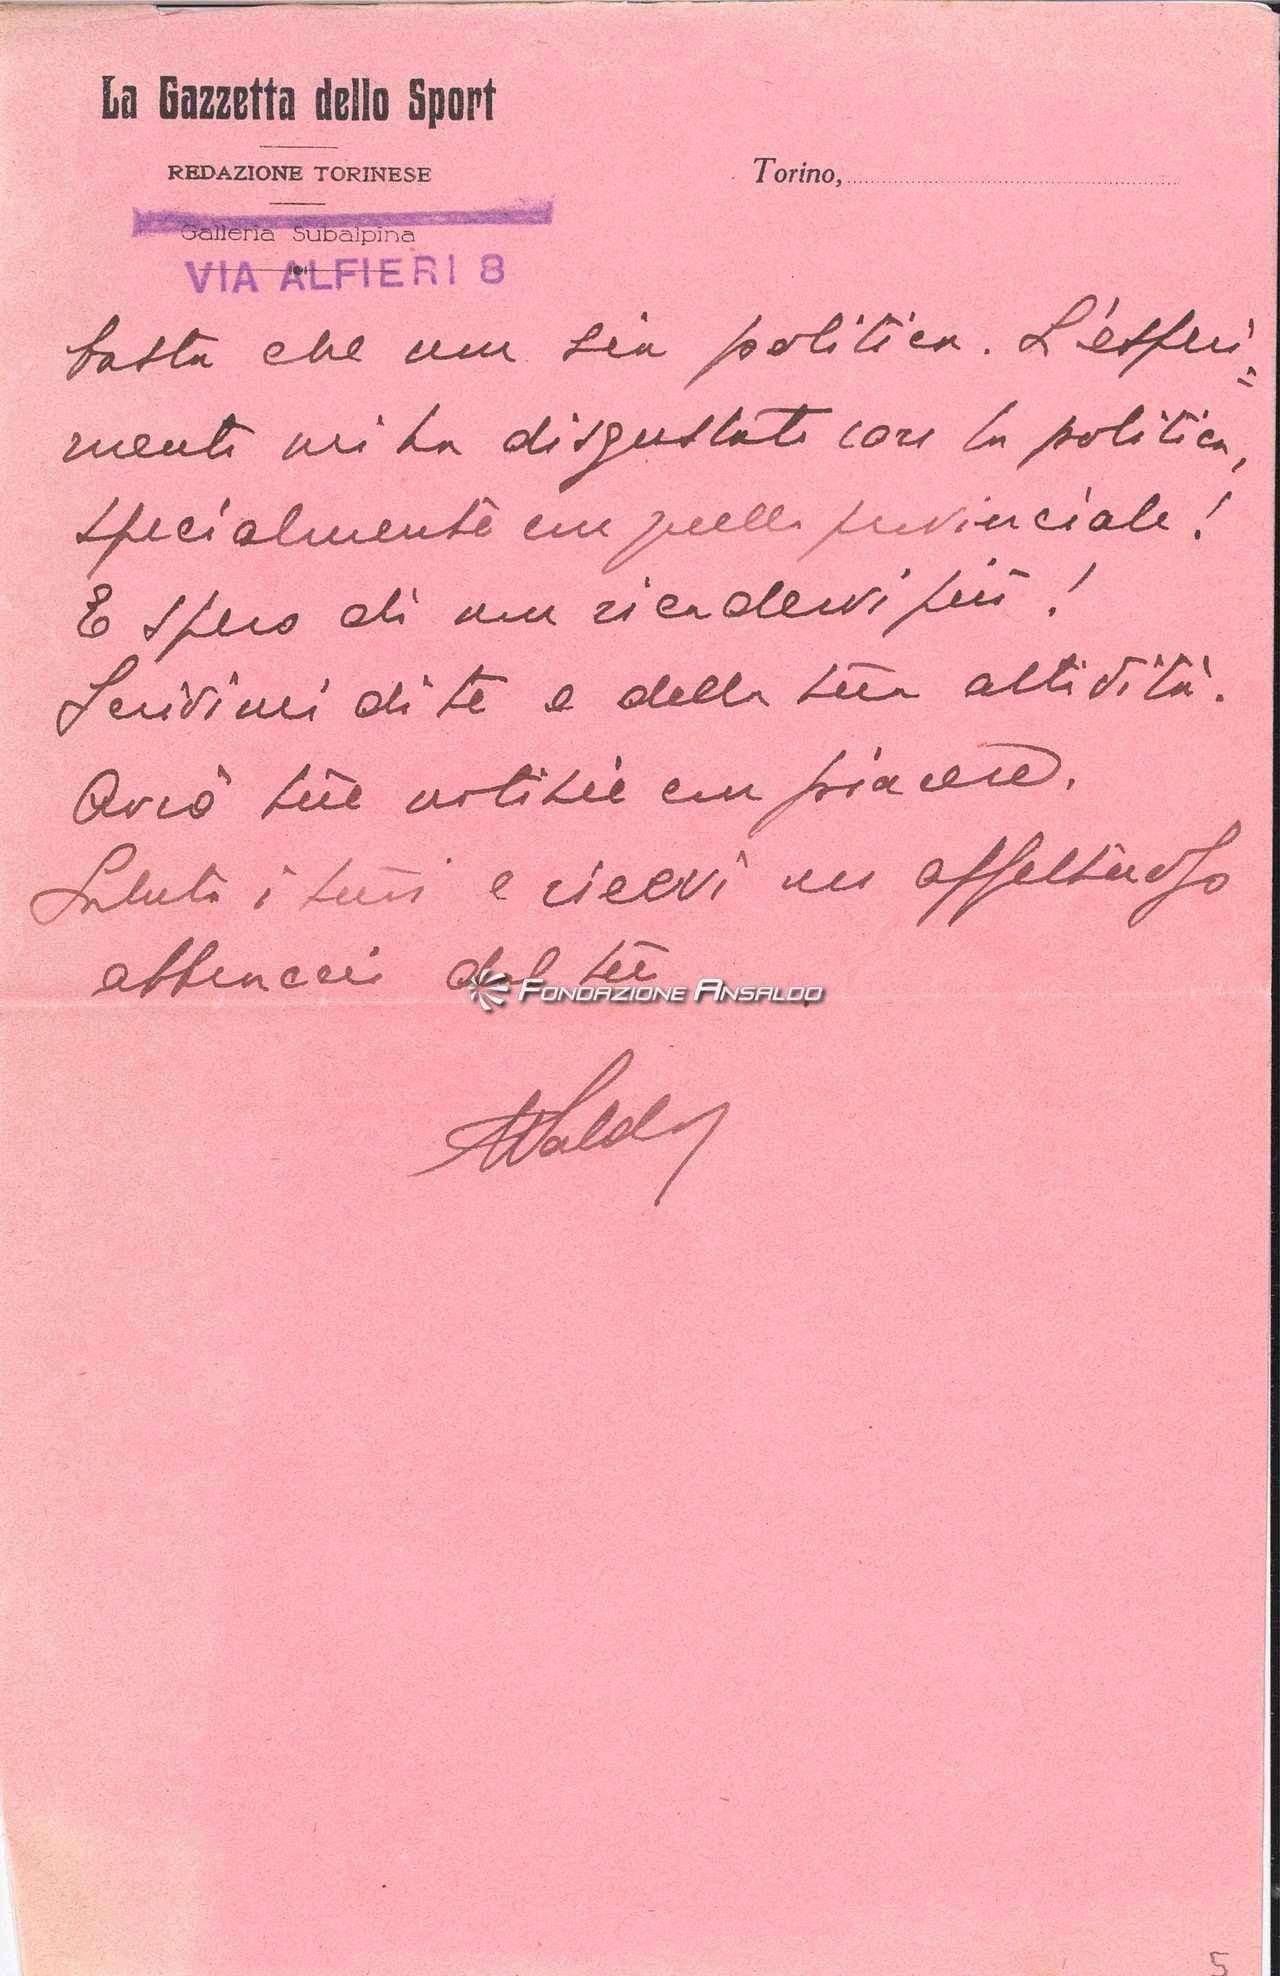 La Gazzetta dello Sport
REDAZIONE TORINESE
Torino,
Galleria Subalpina
VIA ALFIERI 8
basta che non sia politica. L'esperi=
mento mi ha disgustato con la politica,
specialmente con quella provinciale!
E spero di non ricadervi più!
Scrivimi di te e della tua attività.
Avrò tue notizie con piacere.
Saluta i tuoi e ricevi un affettuoso
abbraccio dal tuo
FONDAZIONE ANSALDO
Waldo
5